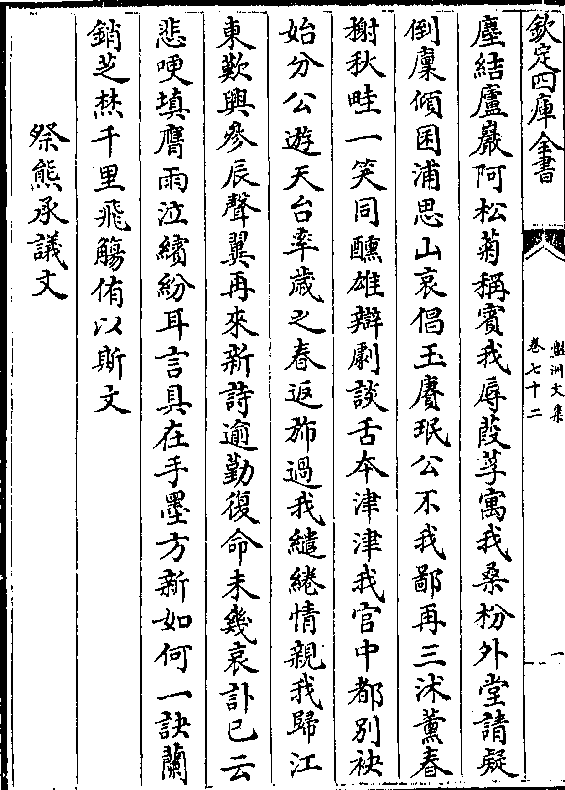 欽定四庫全書
盤洲文集
卷七十二
一
塵結廬巖阿松菊稱賓我辱葭莩寓我桑枌外堂請凝
倒廩傾囷浦思山哀倡玉賡珉公不我鄙再三沐薰春
榭秋畦一笑同醺雄辯劇談舌本津津我官中都別袂
始分公遊天台率歲之春返斾過我繾綣情親我歸江
東歎興參辰聲翼再來新詩逾勤復命未幾哀訃已云
悲哽填膺雨泣繽紛耳言具在手墨方新如何一訣蘭
銷芝焚千里飛觴侑以斯文
祭熊承議文